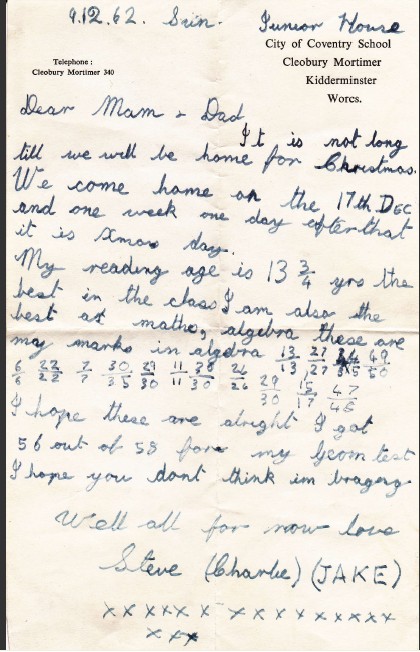 9.12.62. Sun. Junior House
City of Coventry School
Telephone :
Cleobury Mortimer 340
Cleobury Mortimer
Kidderminster
Worcs.
Dear Mam & Dad
It is not long
till we will be home for Christmas.
We come home on the 17th. DEC
and one week one day after that
it is Xmas day.
My reading age is 13 3/4 yrs the
best in the class I am also the
best at maths, algebra these are
my marks in algebra 13/13 27/27 49/50
6/6 22/22 7/7 30/35 29/30 11/11 30/30 26/26 29/30 15/17 47/48
I hope these are alright I got
56 out of 58 for my Geom test
I hope you dont think im braging
Well all for now love
Steve (Charlie) (JAKE)
x x x x x x x x x x x x x x x
x x x